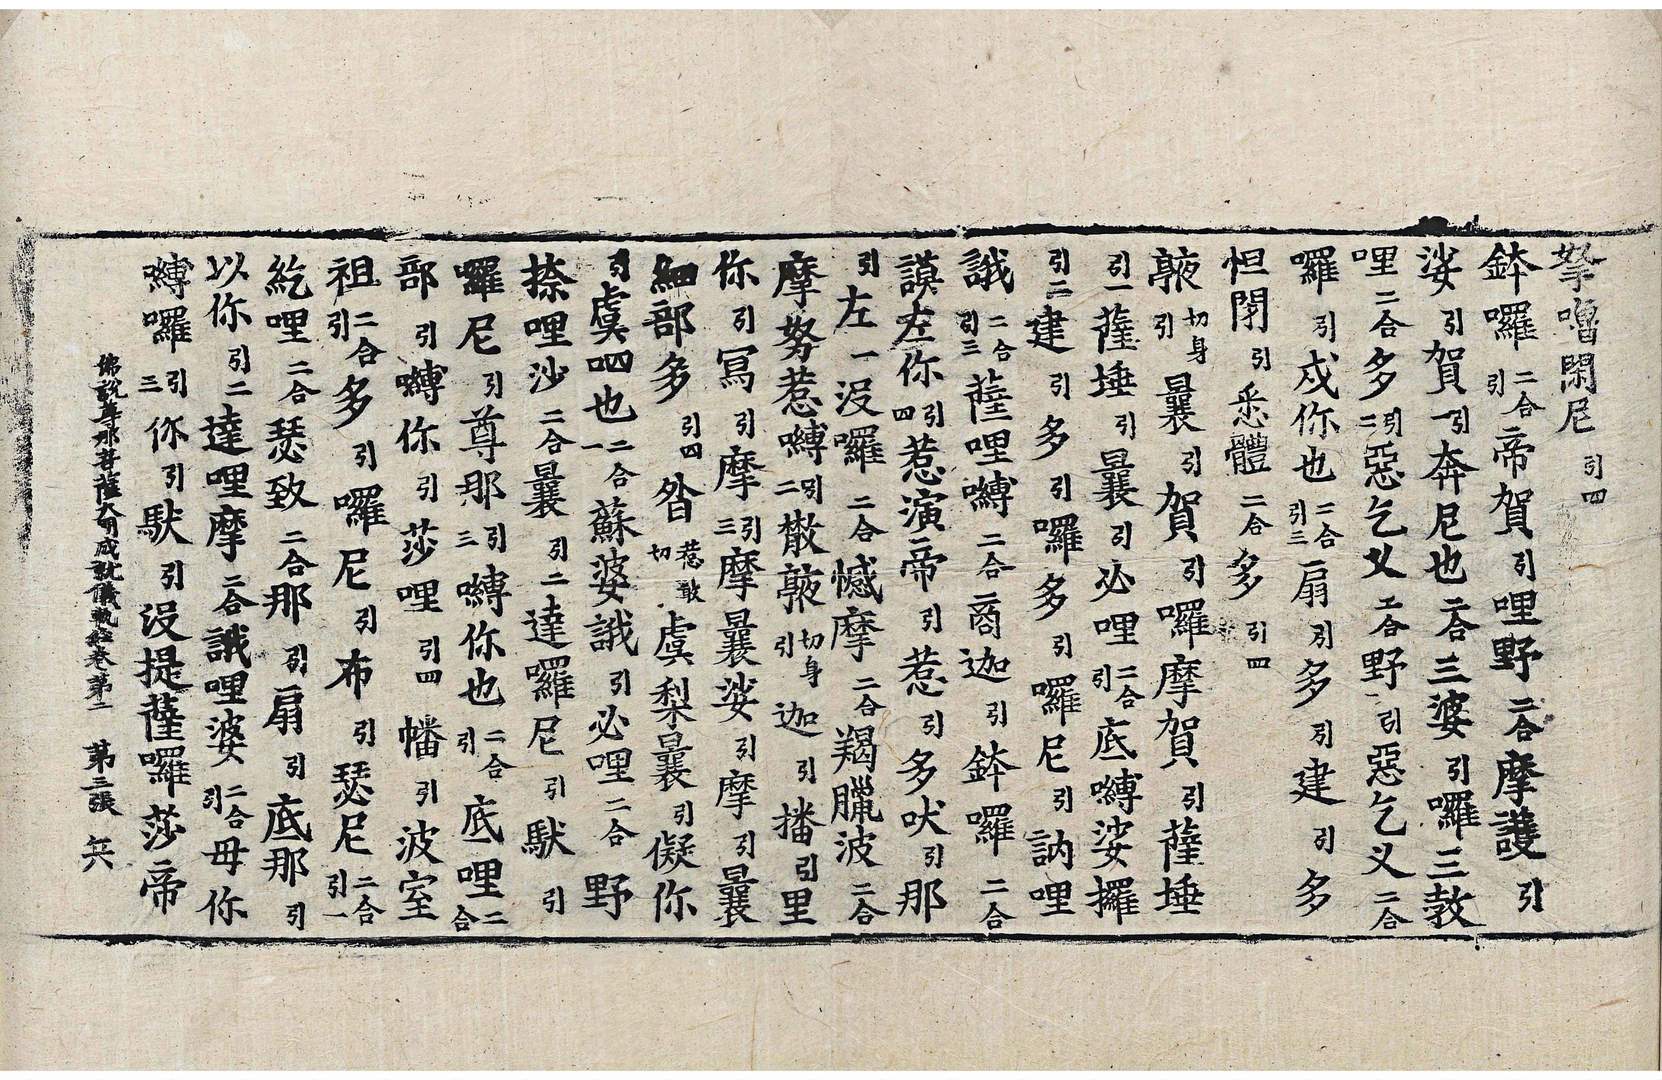 拏嚕閑尼引四
鉢囉二合引帝賀引哩野二合摩護引
娑引賀引一奔尼也二合三婆引囉三教
哩二合多引二惡乞叉二合野引惡乞叉二合
囉引戍你也二合引三扇引多引建引多
怛閉引悉體二合多引四
蹶切身引曩引賀引囉摩賀引薩埵
引一薩埵引曩引必哩二合引底嚩娑攞
引二建引多引囉多引囉尼引訥哩
誐二合引三薩哩嚩二合商迦引鉢囉二合
謨左你引四惹演帝引惹引多吠引那
引左一沒囉二合憾摩二合羯臘波二合
摩努惹嚩引二散蹶切身引迦引播引里
你引寫引摩引三摩曩娑引摩引曩
細部多引四昝惹敢切虞梨曩引儗你
引虞呬也二合一蘇婆誐引必哩二合野
捺哩沙二合曩引二達囉尼引馱引
囉尼引尊那引三嚩你也二合引底哩二合
部引嚩你引莎哩引四幡引波室
祖二合引多引囉尼引布引瑟尼二合引一
紇哩二合瑟致二合那引扇引底那引
以你引二達哩摩二合誐哩婆二合引毋你
嚩囉引三你引馱引沒提薩囉莎帝
佛說尊那菩薩大明成就儀軌經卷第二 第三張 兵